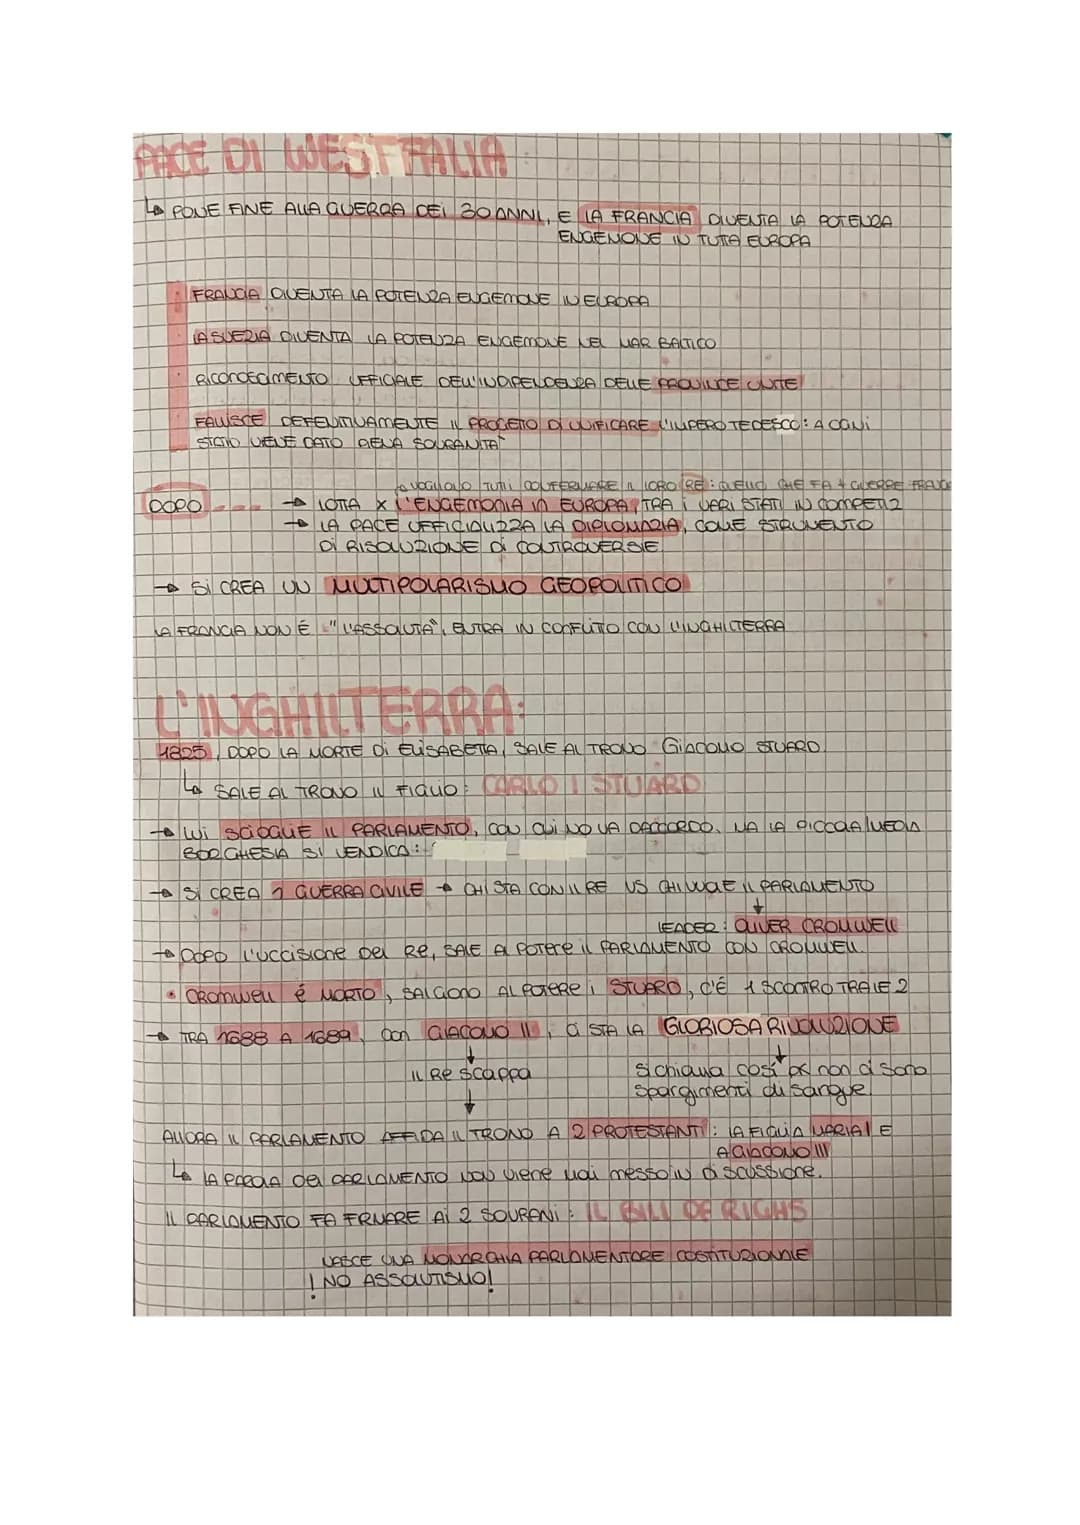 PACE DI WESTFALIA:
↳ PONE FINE ALLA GUERRA DEI 30 ANNI, E LA FRANCIA DIVENTA LA POTENZA
ENGEMONE IN TUTTA EUROPA
· FRANCIA DIVENTA LA POTENZA ENGEMONE IN EUROPA
· LA SVEZIA DIVENTA LA POTENZA ENGEMONE NEL MAR BALTICO
· RICONOSCIMENTO UFFICIALE DELL'INDIPENDENZA DELLE PROVINCE UNITE
· FALLISCE DEFENITIVAMENTE IL PROGETTO DI UNIFICARE L'IMPERO TEDESCO: A OGNI
STATO VIENE DATO PIENA SOVRANITA'
VOGLIONO TUTTI CONFERMARE IL LORO RE: QUELLO CHE FA + GUERRE
DOPO → LOTTA X L'ENGEMONIA IN EUROPA, TRA i VARI STATI IN COMPETIZ
→ LA PACE UFFICIALIZZA LA DIPLOMAZIA, COME STRUMENTO
Di RISOLUZIONE Di CONTROVERSIE
→ Si CREA UN MULTIPOLARISMO GEOPOLITICO
LA FRANCIA NON É "L'ASSOLUTA", ENTRA IN CONFLITTO CON L'INGHILTERRA
L'INGHILTERRA:
1825, DOPO LA MORTE Di ELISABETTA, SALE AL TRONO GIACOMO STUARD.
↳ SALE AL TRONO IL FIGLIO: CARLO I STUARD
→ LUI SCIOGLIE IL PARLAMENTO, CON CUI NO VA D'ACCORDO. MA LA PICCOLA/MEDIA
BORGHESIA SI VENDICA:
→ Si CREA 1 GUERRA CIVILE → CHI STA CON IL RE VS CHI VUOLE IL PARLAMENTO
LEADER: OLIVER CROMWELL
→ DOPO L'UCCISIONE DEL RE, SALE AL POTERE IL PARLAMENTO CON CROMWELL.
• CROMWELL é MORTO, SALGONO AL POTERE i STUARD, C'É 1 SCONTRO TRA LE 2
→ TRA 1688 A 1689, CON GIACOMO II, CI STA LA GLORIOSA RIVOLUZIONE
↓ IL RE SCAPPA
↓ si chiama così pk non ci sono
spargimenti di sangue.
ALLORA IL PARLAMENTO AFFIDA IL TRONO A 2 PROTESTANTI: LA FIGLIA MARIA I E
A GIACOMO III
↳ LA PAROLA DEL PARLAMENTO NON viene mai messo in discussione.
IL PARLAMENTO FA FRMARE AI 2 SOVRANI: IL BILL OF RIGHS
NASCE UNA MONARCHIA PARLAMENTARE COSTITUZIONALE
! NO ASSOLUTISMO!